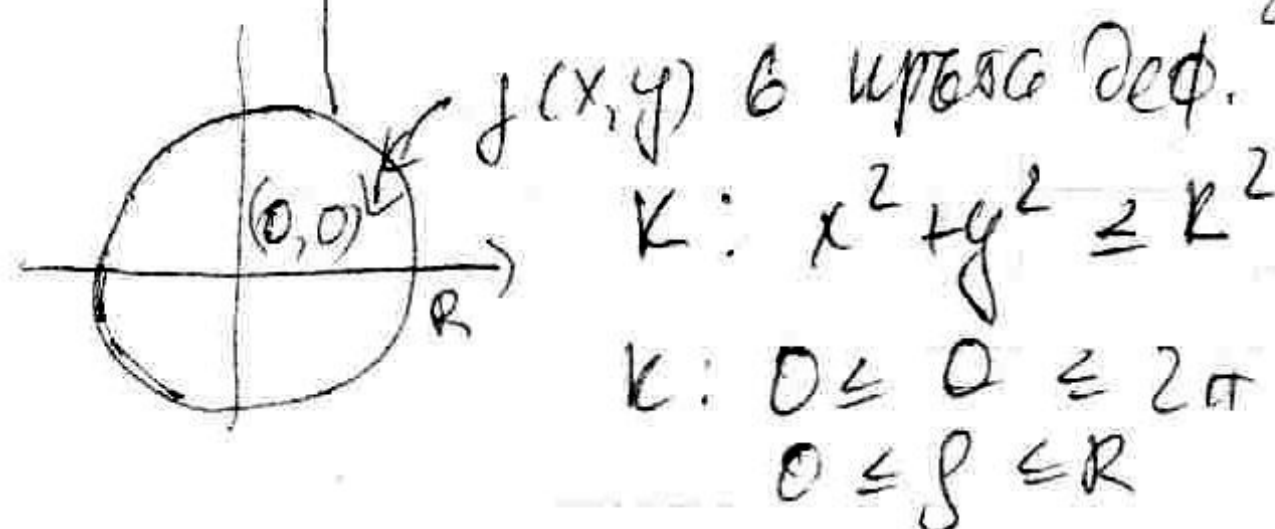 f(x,y) в кръга деф.
K: x² + y² ≤ R²
(0,0)
R
K: 0 ≤ θ ≤ 2π
0 ≤ ρ ≤ R